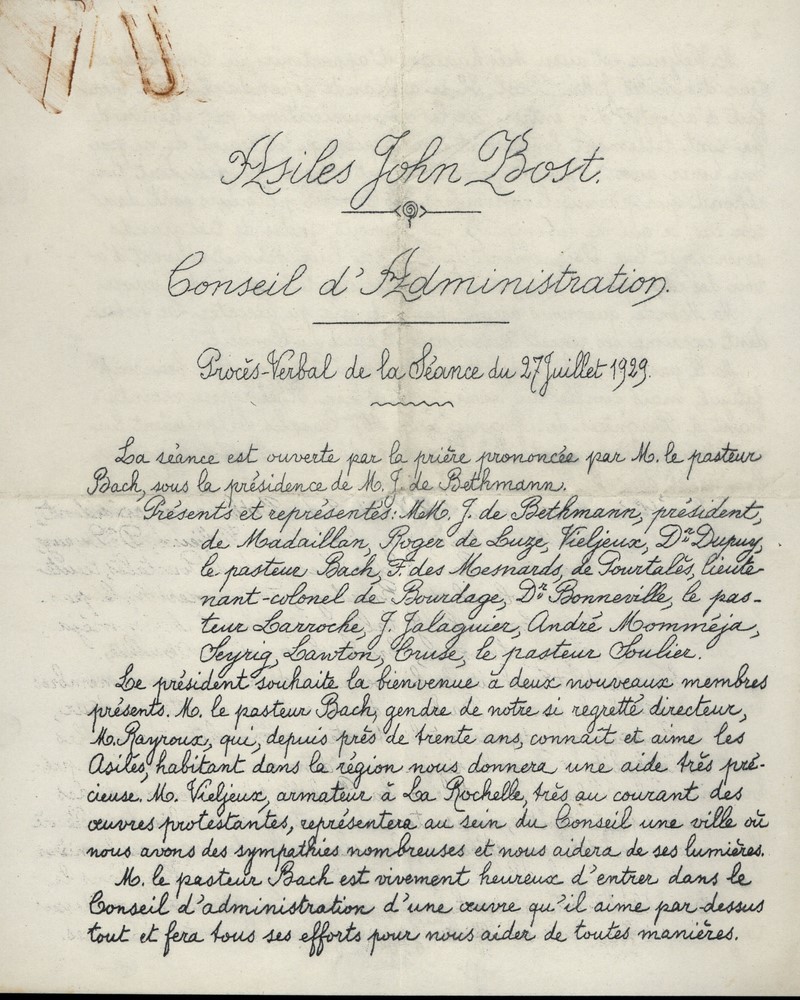 Asiles John Bost.
Conseil d'Administration.
Procès-Verbal de la Séance du 27 Juillet 1929.
La séance est ouverte par la prière prononcée par M. le pasteur
Bach, sous la présidence de M. J. de Bethmann.
Présents et représentés: MM. J. de Bethmann, président,
de Madaillan, Roger de Luze, Vieljeux, Dr Dupuy,
le pasteur Bach, F. des Mesnards, de Pourtalès, lieute-
nant-colonel de Bourdage, Dr Bonneville, le pas-
teur Larroche, J. Jalaguier, André Momméja,
Seyrig, Lawton, Cruse, le pasteur Soulier.
Le président souhaite la bienvenue à deux nouveaux membres
présents. M. le pasteur Bach, gendre de notre si regretté directeur,
M. Rayroux, qui, depuis près de trente ans, connaît et aime les
Asiles, habitant dans la région nous donnera une aide très pré-
cieuse. M. Vieljeux, armateur à La Rochelle, très au courant des
œuvres protestantes, représentera au sein du Conseil une ville où
nous avons des sympathies nombreuses et nous aidera de ses lumières.
M. le pasteur Bach est vivement heureux d'entrer dans le
Conseil d'administration d'une œuvre qu'il aime par-dessus
tout et fera tous ses efforts pour nous aider de toutes manières.